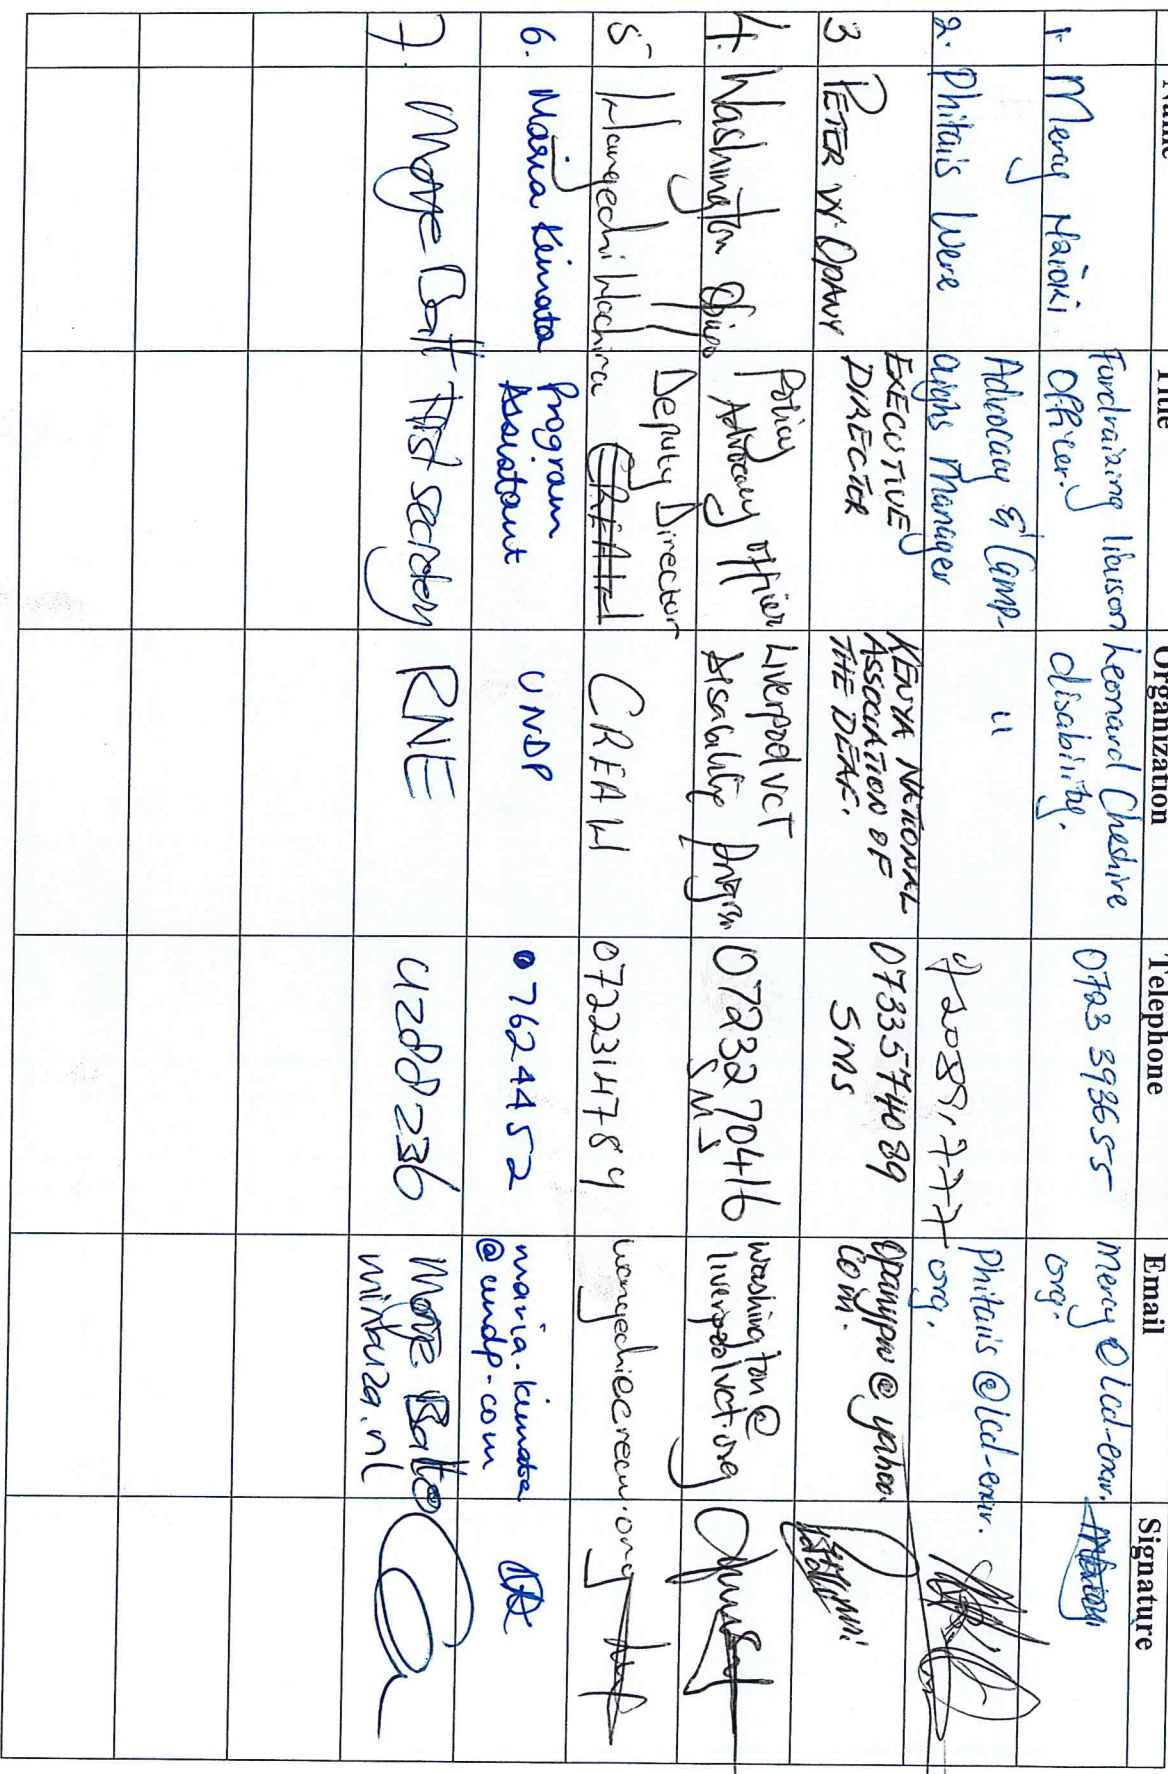 Name Title Organization Telephone Email Signature
1. Mercy Njoroki Fundraizing liaison Officer. Leonard Cheshire disability. 0723 393655 mercy@lcd-enar.org.
2. Phitalis Were Advocacy & Campaigns Manager " Phitalis@lcd-enar.org.
3 PETER W. OPANY EXECUTIVE DIRECTOR KENYA NATIONAL ASSOCIATION OF THE DEAF. 0733574089 SMS Opanypw@yahoo.com.
4. Washington Policy Advocacy Officer Liverpool VCT Disability Program 0723270416 SMS washington@liverpoolvct.org
5 Wangechi Wachira Deputy Director CREAW 0722314784 wangechi@creaw.org
6. Maria Kimata Program Assistant UNDP 07624452 maria.kimata@undp.com
7. First secretary RNE minbuza.nl